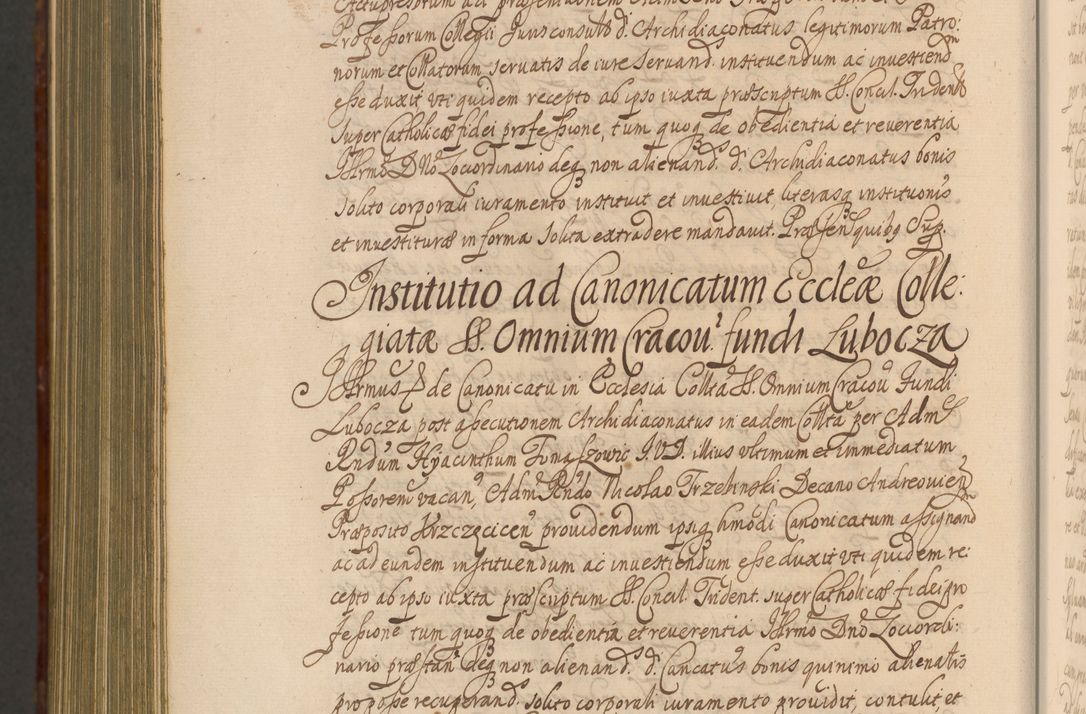 Professorum Collegii Jurisconsulto d: Archidiaconatus legitimorum Patro:
norum et Collatorum servatis de iure servand. instituendum ac investiend
esse duxit vti quidem recepto ab ipso iuxta præscriptum SS. Concil. Trident
super Catholicæ fidei professione, tum quoq de obedientia et reverentia
Illrmo Dno Locordinario deq non alienand. d: Archidiaconatus bonis
solito corporali iuramento instituit et investivit, literasq institutionis
et investituræ in forma solita extradere mandavit. Præsen quibg Sup.
Institutio ad Canonicatum Eccleæ Colle:
giatæ SS. Omnium Cracou: fundi Lubocza
Illrmus de Canonicatu in Ecclesia Collta SS. Omnium Cracou fundi
Lubocza post assecutionem Archidiaconatus in eadem Collta per Adm
Rndum Hyacinthum Tomaszowic I.V.D. illius vltimum et immediatum
Possorem vacan, Adm Rndo Nicolao Trzebinski Decano Andreouien
Præposito Krzczęcicen prouidendum ipsiq hmodi Canonicatum assignand
ac ad eundem instituendum ac investiendum esse duxit vti quidem re:
cepto ab ipso iuxta præscriptum SS. Concil. Trident. super Catholicæ fidei pro
fessione tum quoq de obedientia et reverentia Illrmo Dno Locordi:
nario præstan deq non alienand. d: Cancatus bonis quinimo alienatis
pro posse recuperand. solito corporali iuramento prouidit, contulit, et